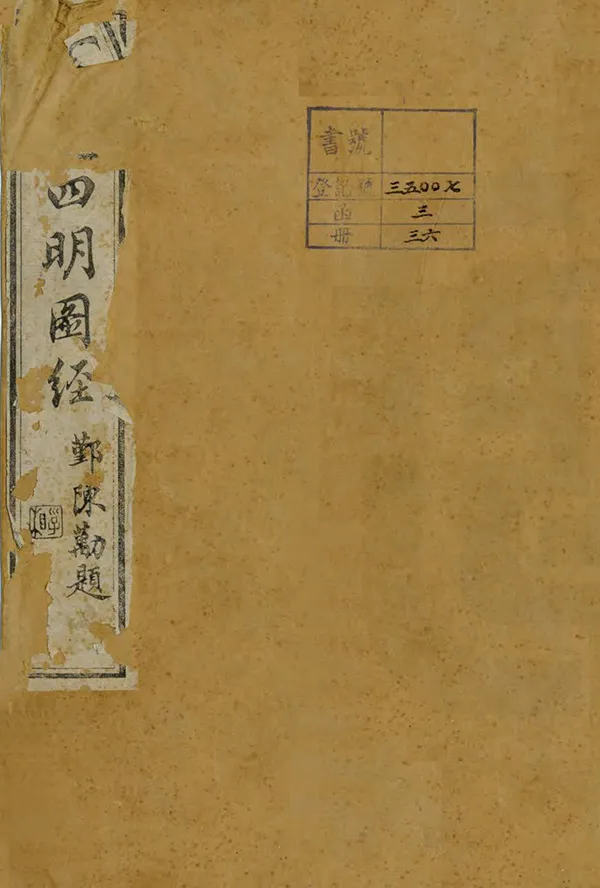 四明圖經
鄞陳勱題
書號
登記號 三五00七
函 三
册 三六